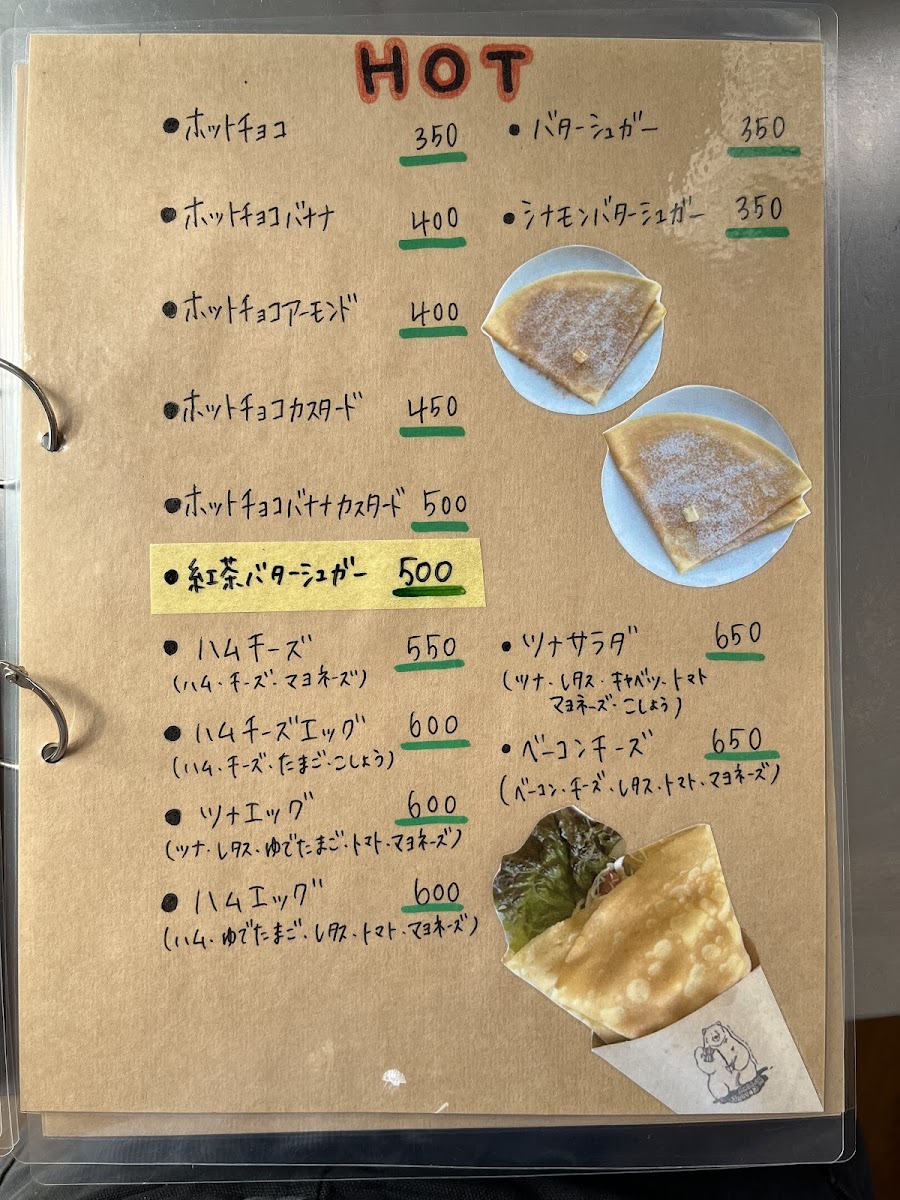 HOT
●ホットチョコ 350
●ホットチョコバナナ 400
●ホットチョコアーモンド 400
●ホットチョコカスタード 450
●ホットチョコバナナカスタード 500
●紅茶バターシュガー 500
●ハムチーズ 550
(ハム・チーズ・マヨネーズ)
●ハムチーズエッグ 600
(ハム・チーズ・たまご・こしょう)
●ツナエッグ 600
(ツナ・レタス・ゆでたまご・トマト・マヨネーズ)
●ハムエッグ 600
(ハム・ゆでたまご・レタス・トマト・マヨネーズ)
●バターシュガー 350
●シナモンバターシュガー 350
●ツナサラダ 650
(ツナ・レタス・キャベツ・トマト
マヨネーズ・こしょう)
●ベーコンチーズ 650
(ベーコン・チーズ・レタス・トマト・マヨネーズ)